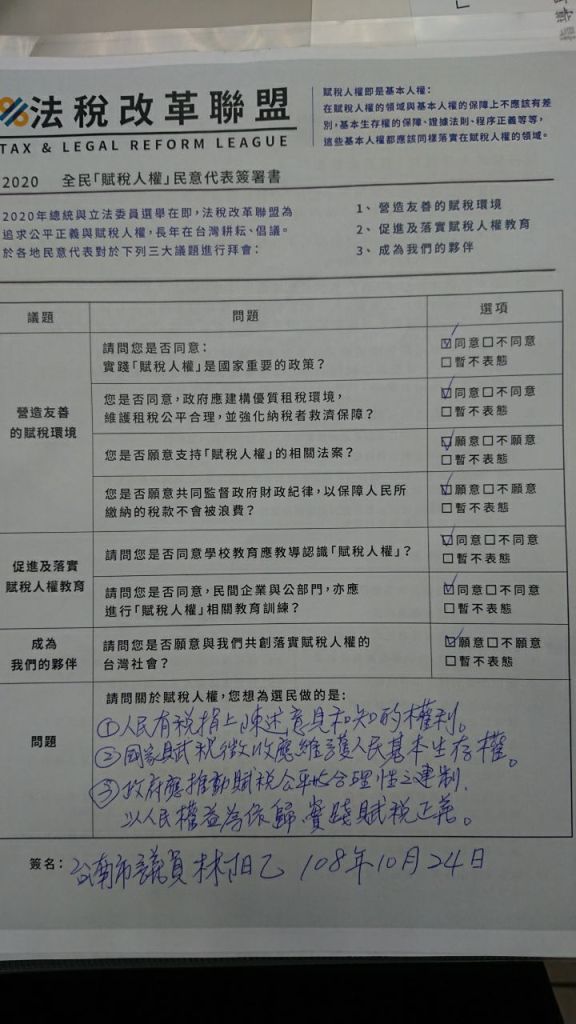 法稅改革聯盟
TAX & LEGAL REFORM LEAGUE
賦稅人權即是基本人權：
在賦稅人權的領域與基本人權的保障上不應該有差
別，基本生存權的保障、證據法則、程序正義等等，
這些基本人權都應該同樣落實在賦稅人權的領域。
2020 全民「賦稅人權」民意代表簽署書
2020年總統與立法委員選舉在即，法稅改革聯盟為
追求公平正義與賦稅人權，長年在台灣耕耘、倡議。
於各地民意代表對於下列三大議題進行拜會：
1、營造友善的賦稅環境
2、促進及落實賦稅人權教育
3、成為我們的夥伴
議題 問題 選項
營造友善
的賦稅環境
請問您是否同意：
實踐「賦稅人權」是國家重要的政策？
☑同意□不同意
□暫不表態
您是否同意，政府應建構優質租稅環境，
維護租稅公平合理，並強化納稅者救濟保障？
☑同意□不同意
□暫不表態
您是否願意支持「賦稅人權」的相關法案？
☑願意□不願意
□暫不表態
您是否願意共同監督政府財政紀律，以保障人民所
繳納的稅款不會被浪費？
☑願意□不願意
□暫不表態
促進及落實
賦稅人權教育
請問您是否同意學校教育應教導認識「賦稅人權」？
☑同意□不同意
□暫不表態
請問您是否同意，民間企業與公部門，亦應
進行「賦稅人權」相關教育訓練？
☑同意□不同意
□暫不表態
成為
我們的夥伴
請問您是否願意與我們共創落實賦稅人權的
台灣社會？
☑願意□不願意
□暫不表態
問題
請問關於賦稅人權，您想為選民做的是：
①人民有稅捐上陳述意見和知的權利。
②國家賦稅徵收應維護人民基本生存權。
③政府應推動賦稅公平地合理性之建制，
以人民權益為依歸，實踐賦稅正義。
簽名：台南市議員 林阳乙 108年10月24日